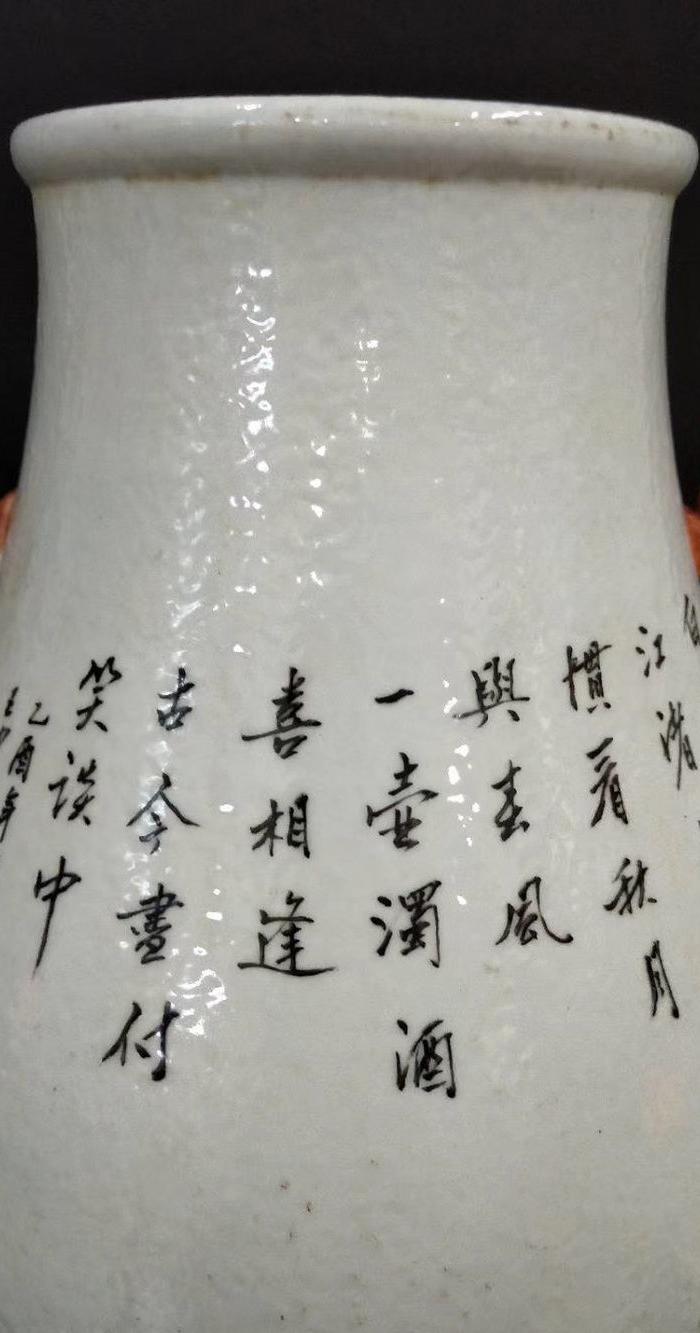 江渚
慣看秋月
與春風
一壺濁酒
喜相逢
古今盡付
笑談中
乙酉年